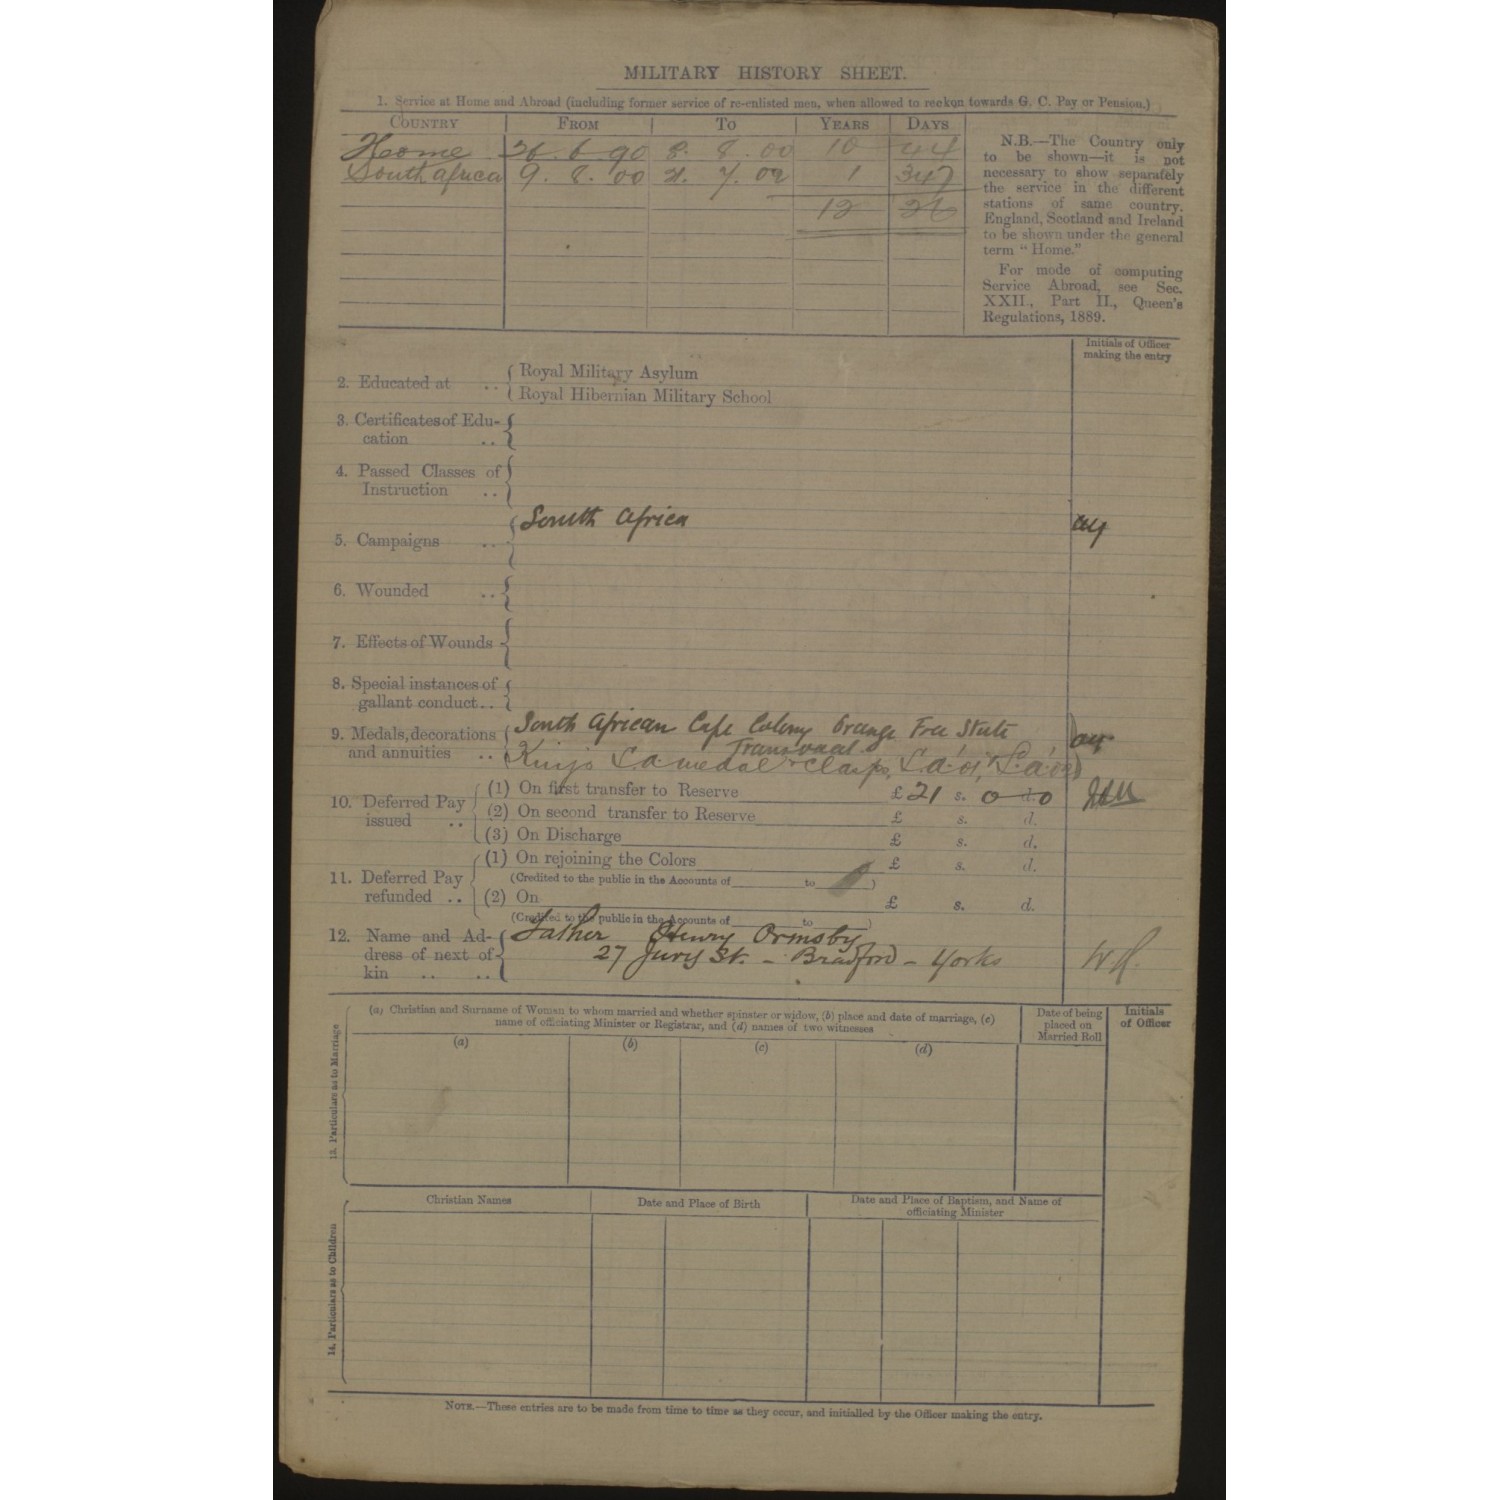 MILITARY HISTORY SHEET.
1. Service at Home and Abroad (including former service of re-enlisted men, when allowed to reckon towards G. C. Pay or Pension.)
COUNTRY FROM TO YEARS DAYS
Home 26. 6. 90 8. 8. 00 10 44
South Africa 9. 8. 00 21. 7. 02 1 347
12 26
N.B.—The Country only
to be shown—it is not
necessary to show separately
the service in the different
stations of same country.
England, Scotland and Ireland
to be shown under the general
term "Home."
For mode of computing
Service Abroad, see Sec.
XXII., Part II., Queen's
Regulations, 1889.
Initials of Officer
making the entry
2. Educated at .. Royal Military Asylum
Royal Hibernian Military School
3. Certificates of Edu-
cation ..
4. Passed Classes of
Instruction ..
5. Campaigns .. South Africa
6. Wounded ..
7. Effects of Wounds
8. Special instances of
gallant conduct..
9. Medals, decorations
and annuities ..
South African Cape Colony Orange Free State
Transvaal
Kings S.A. medal & Clasps, S.A. '01, S.A. '02
10. Deferred Pay
issued ..
(1) On first transfer to Reserve £ 21 s. 0 d. 0
(2) On second transfer to Reserve £ s. d.
(3) On Discharge £ s. d.
11. Deferred Pay
refunded ..
(1) On rejoining the Colors £ s. d.
(Credited to the public in the Accounts of to )
(2) On £ s. d.
(Credited to the public in the Accounts of to )
12. Name and Ad-
dress of next of
kin .. ..
Father Henry Ormsby
27 St. - Bradford - Yorks
13. Particulars as to Marriage
(a) Christian and Surname of Woman to whom married and whether spinster or widow, (b) place and date of marriage, (c)
name of officiating Minister or Registrar, and (d) names of two witnesses
Date of being
placed on
Married Roll
Initials
of Officer
(a) (b) (c) (d)
14. Particulars as to Children
Christian Names Date and Place of Birth Date and Place of Baptism, and Name of
officiating Minister
NOTE.—These entries are to be made from time to time as they occur, and initialled by the Officer making the entry.